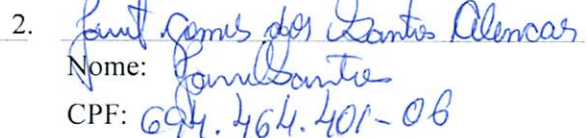 2. Janet Gomes dos Santos Alencar
Nome: Santos
CPF: 694.464.401-06